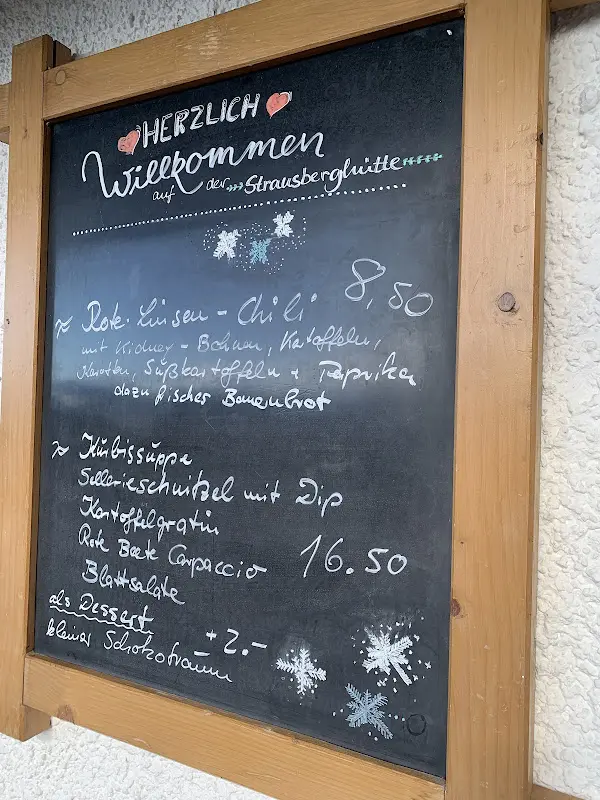 HERZLICH
Willkommen
auf der Strausberghütte
Rote-Linsen-Chili 8,50
mit Kidney-Bohnen, Kartoffeln,
Karotten, Süßkartoffeln + Paprika
dazu frisches Bauernbrot
Kürbissuppe
Sellerieschnitzel mit Dip
Kartoffelgratin
Rote Beete Carpaccio 16.50
Blattsalate
als Dessert
+ 2.-
kleiner Schokotraum